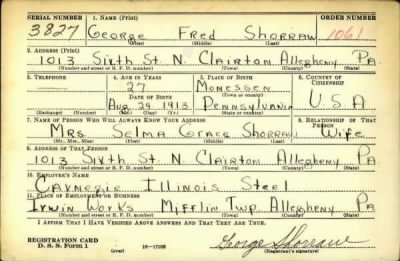 SERIAL NUMBER 1. NAME (Print) ORDER NUMBER
3827 George Fred Shorraw 1061
(First) (Middle) (Last)
2. ADDRESS (Print)
1013 Sixth St. N. Clairton Allegheny Pa
(Number and street or R. F. D. number) (Town) (County) (State)
3. TELEPHONE 4. AGE IN YEARS 5. PLACE OF BIRTH 6. COUNTRY OF CITIZENSHIP
27 Monessen
DATE OF BIRTH (Town or county)
Aug 29 1913 Pennsylvania U.S.A
(Mo.) (Day) (Yr.) (State or country)
7. NAME OF PERSON WHO WILL ALWAYS KNOW YOUR ADDRESS 8. RELATIONSHIP OF THAT PERSON
Mrs. Selma Grace Shorraw Wife
(Mr., Mrs., Miss) (First) (Middle) (Last)
9. ADDRESS OF THAT PERSON
1013 Sixth St. N. Clairton Allegheny Pa
(Number and street or R. F. D. number) (Town) (County) (State)
10. EMPLOYER'S NAME
Carnegie Illinois Steel
11. PLACE OF EMPLOYMENT OR BUSINESS
Irwin Works Mifflin Twp. Allegheny Pa
(Number and street or R. F. D. number) (Town) (County) (State)
I AFFIRM THAT I HAVE VERIFIED ABOVE ANSWERS AND THAT THEY ARE TRUE.
REGISTRATION CARD
D. S. S. Form 1 16—17105 George Shorraw
(Registrant's signature)